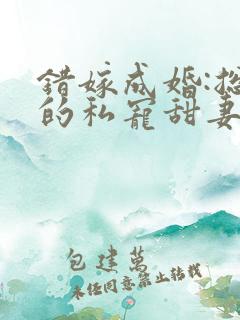 错嫁成婚:总
的私宠甜妻
包建萬
未经同意禁止转载